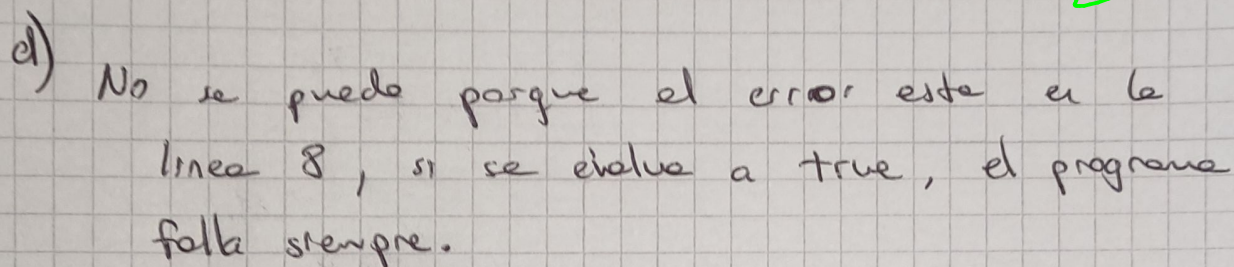 d) No se puede porque el error esta en la
linea 8, si se evalua a true, el programa
falla siempre.